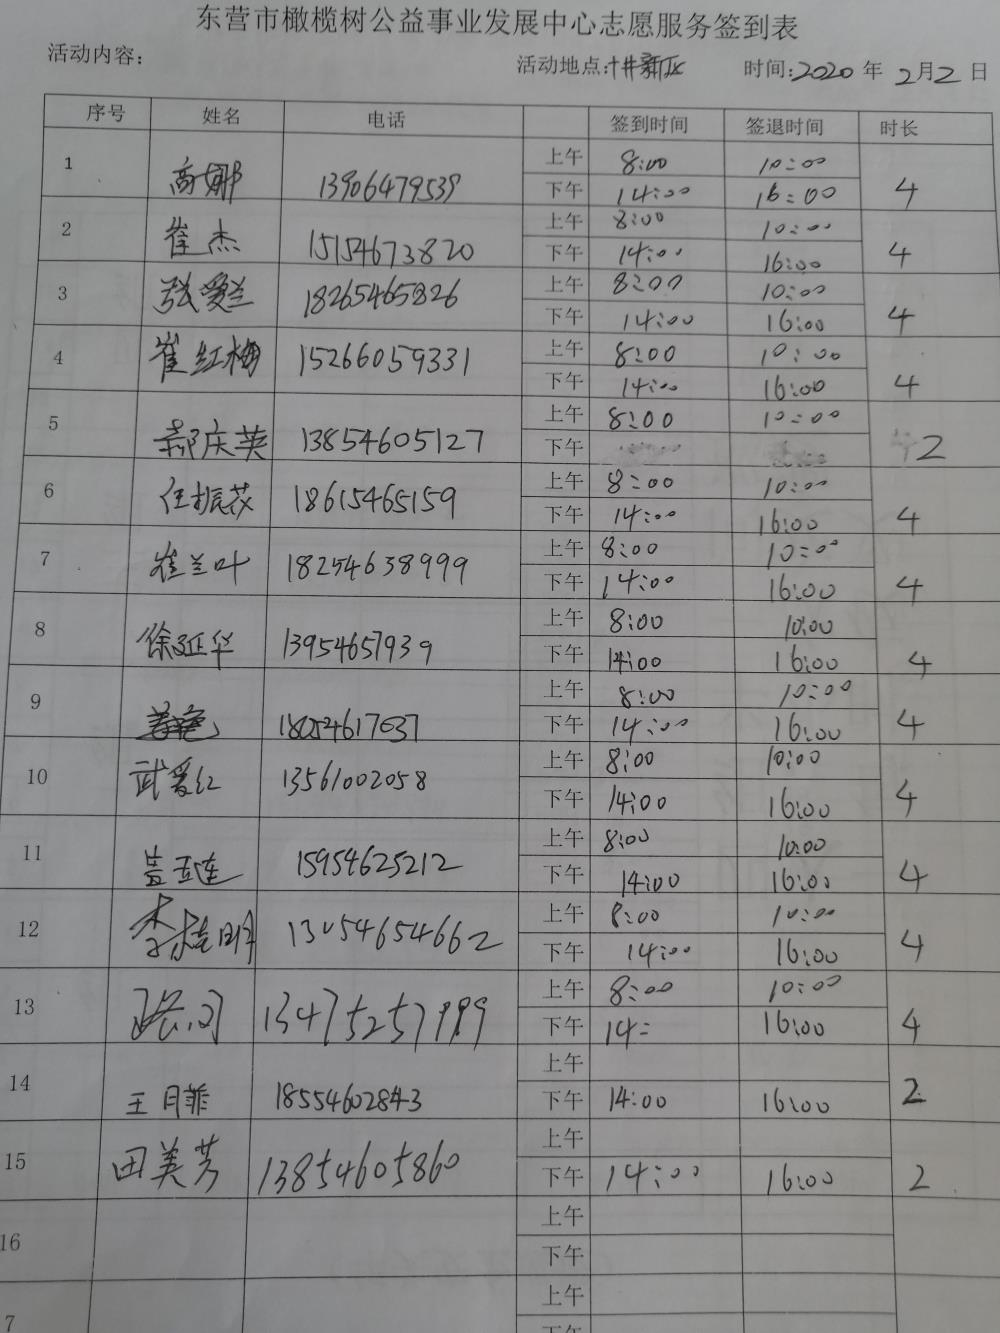 东营市橄榄树公益事业发展中心志愿服务签到表
活动内容： 活动地点：卄井新区 时间：2020 年 2月2日
序号 姓名 电话 签到时间 签退时间 时长
上午 8:00 10:00
1 高娜 13906479539 4
下午 14:00 16:00
上午 8:00 10:00
2 崔杰 15154673820 4
下午 14:00 16:00
上午 8:00 10:00
3 张爱兰 18265465826 4
下午 14:00 16:00
上午 8:00 10:00
4 崔红梅 15266059331 4
下午 14:00 16:00
上午 8:00 10:00
5 郝庆英 13854605127 2
下午
上午 8:00 10:00
6 任振花 18615465159 4
下午 14:00 16:00
上午 8:00 10:00
7 崔兰叶 18254638999 4
下午 14:00 16:00
上午 8:00 10:00
8 徐延华 13954651939 4
下午 14:00 16:00
上午 8:00 10:00
9 18054617037 4
下午 14:00 16:00
上午 8:00 10:00
10 武爱红 13561002058 4
下午 14:00 16:00
上午 8:00 10:00
11 盖五连 15954625212 4
下午 14:00 16:00
上午 8:00 10:00
12 李桂明 13054654662 4
下午 14:00 16:00
上午 8:00 10:00
13 13475257999 4
下午 14: 16:00
上午
14 王月菲 18554602843 2
下午 14:00 16:00
上午
15 田美芳 13854605860 2
下午 14:00 16:00
上午
16
下午
上午
7
下午